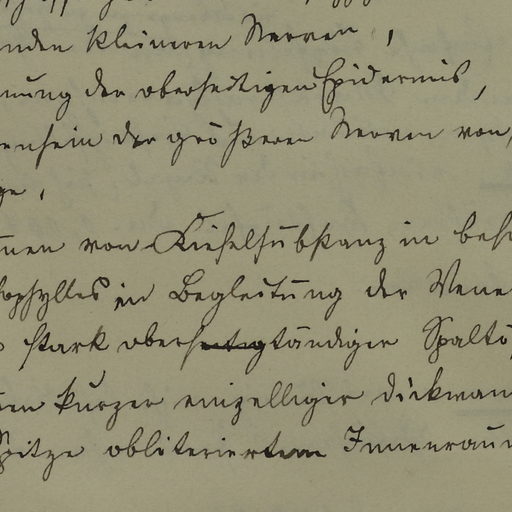 nden kleineren Nerven,
nung der oberseitigen Epidermis,
ensein der größeren Nerven von
ge,
men von Kieselsubstanz in bes
ophylles in Begleitung der Vene
stark oberständiger Spaltö
en kurzer einzelliger dickwan
Spitze obliteriertem Innenraum